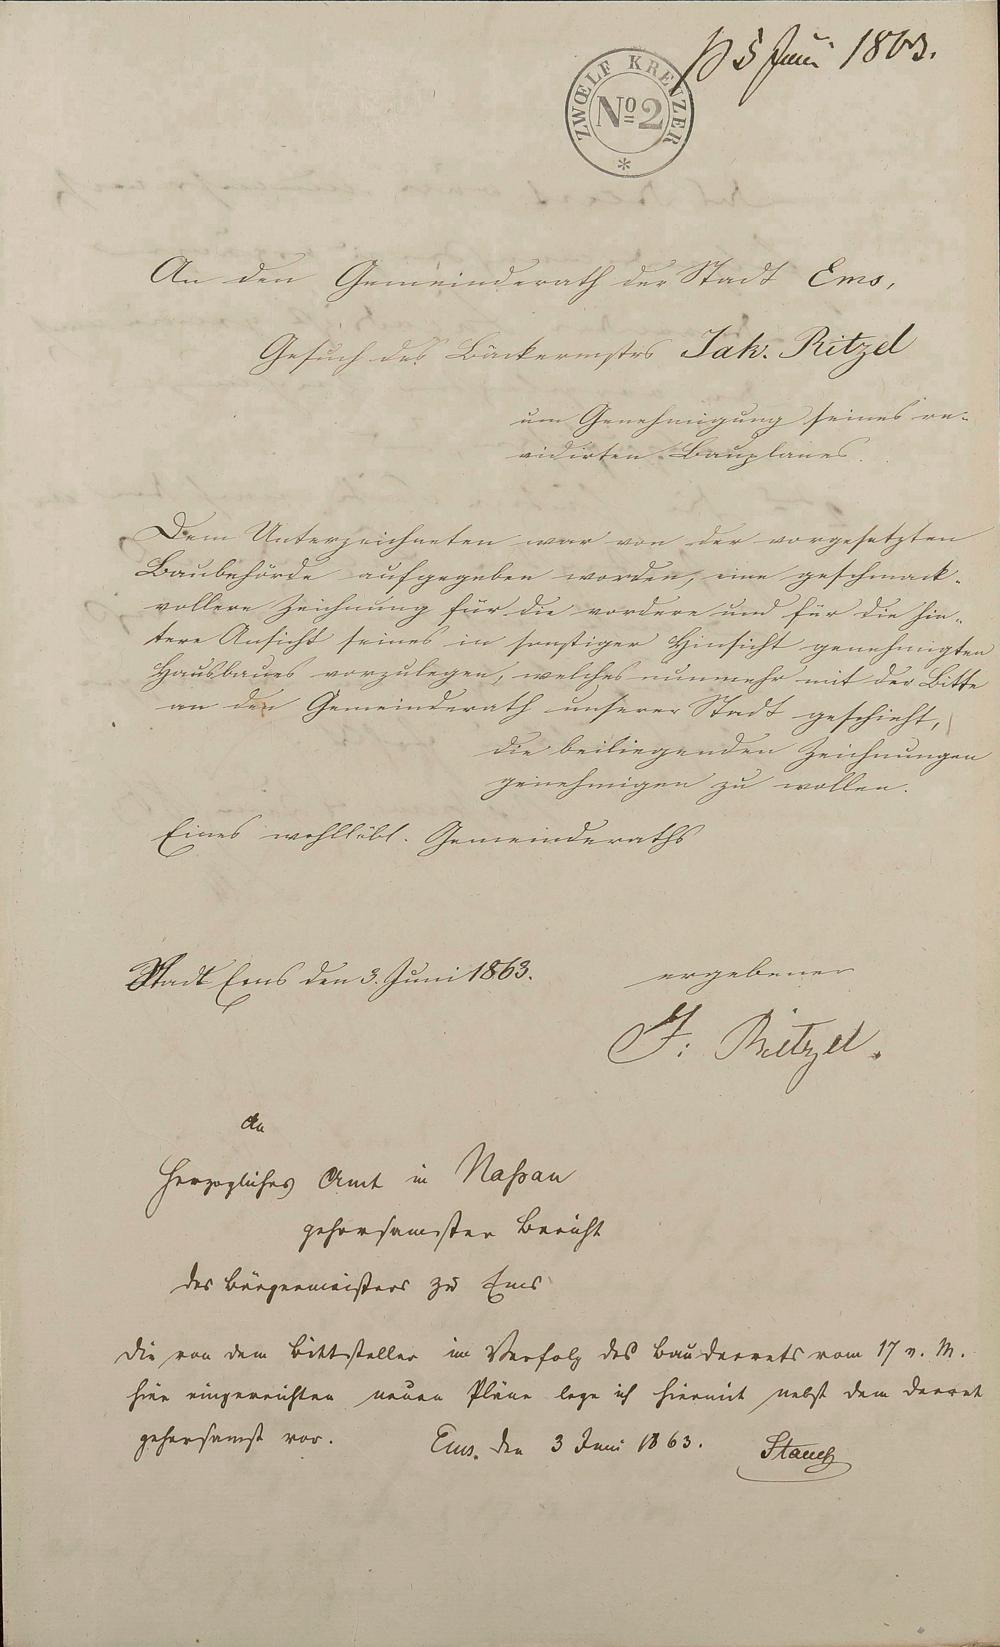 5 Juni 1863.
ZWŒLF KREUZER
No 2
An den Gemeinderath der Stadt Ems,
Gesuch des Bäckermstrs Jak. Ritzel
um Genehmigung seines re-
vidirten Bauplanes.
Dem Unterzeichneten war von der vorgesetzten
Baubehörde aufgegeben worden, eine geschmack-
vollere Zeichnung für die vordere und für die hin-
tere Ansicht seines in sonstiger Hinsicht genehmigten
Hausbaues vorzulegen, welches nunmehr mit der Bitte
an den Gemeinderath unserer Stadt geschieht,
die beiliegenden Zeichnungen
genehmigen zu wollen.
Eines wohllöbl. Gemeinderaths
Stadt Ems den 3. Juni 1863.
ergebener
J: Ritzel.
An
Herzogliches Amt in Naßau
gehorsamster Bericht
des Bürgermeisters zu Ems
Die von dem Bittsteller im Verfolg des Baudecrets vom 17 v. M.
hier eingereichten neuen Pläne lege ich hiermit nebst dem Decret
gehorsamst vor.
Ems, den 3 Juni 1863.